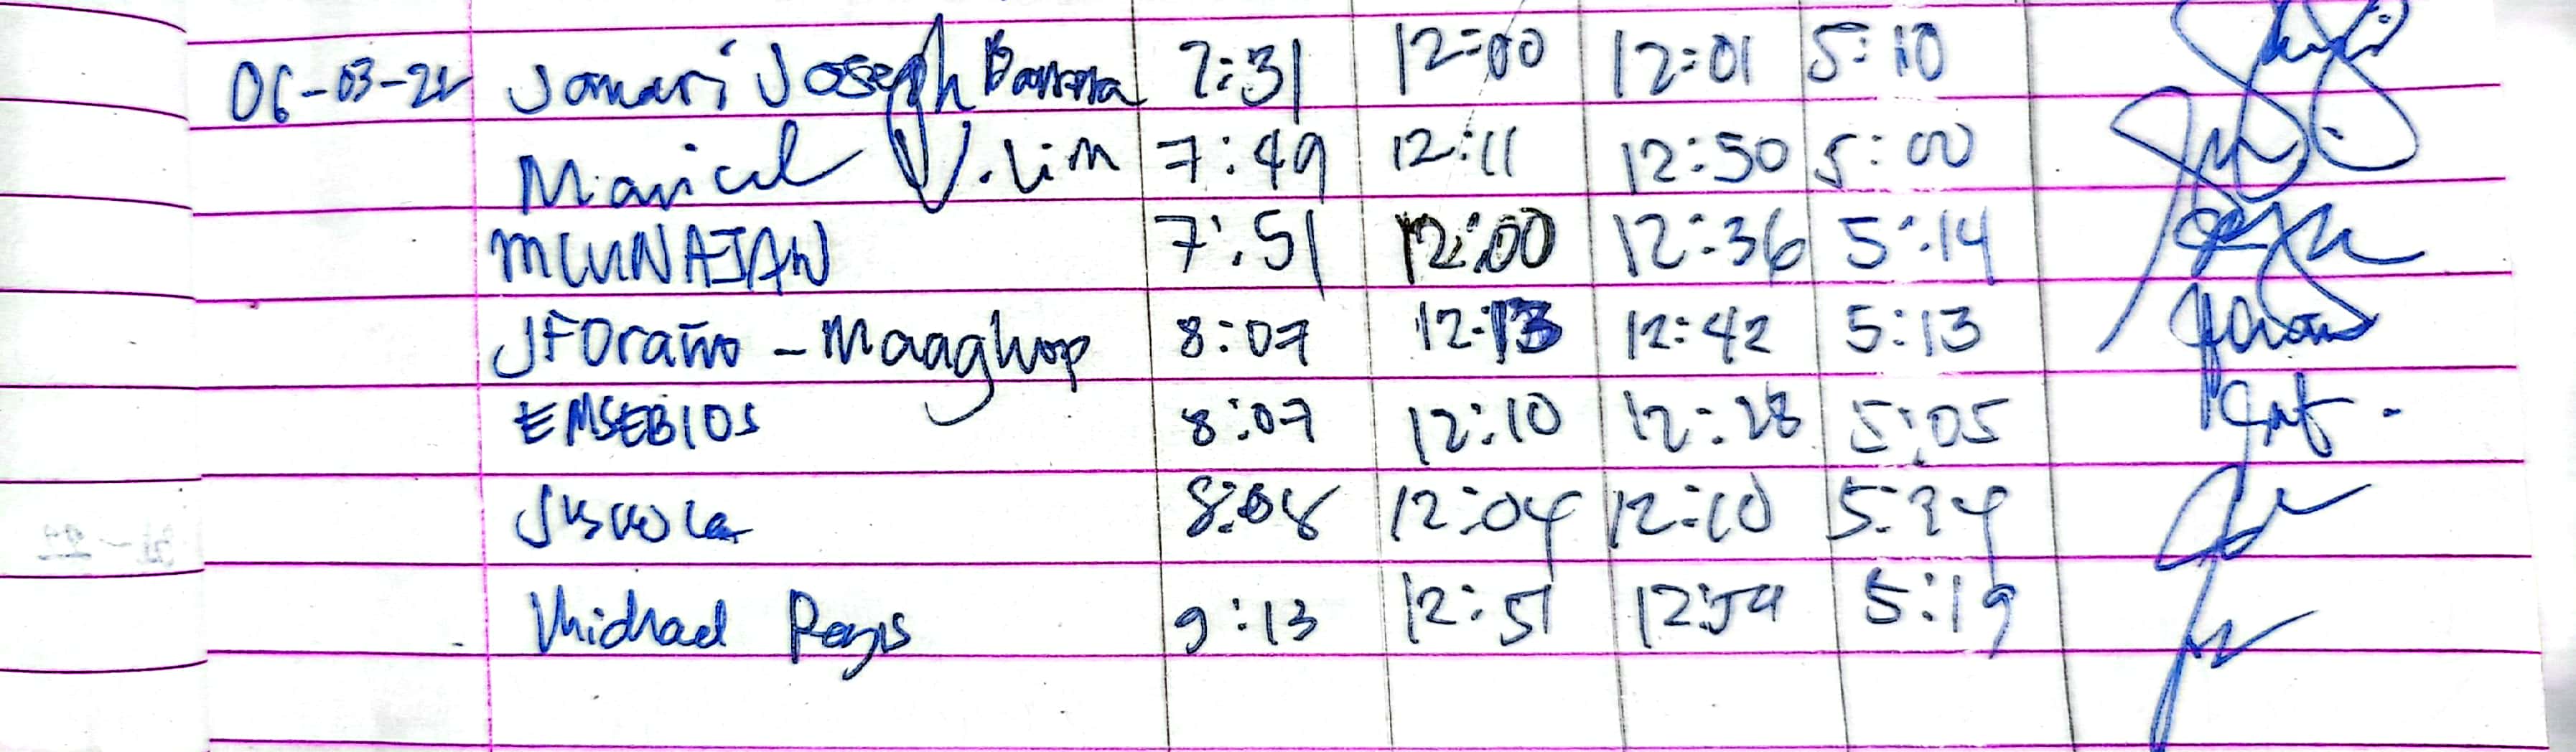 06-03-22 Jomari Joseph 7:31 12:00 12:01 5:10
Maricel V. Lim 7:49 12:11 12:50 5:00
MCUNAJAN 7:51 12:00 12:36 5:14
JFOraño - Maaghop 8:07 12:13 12:42 5:13
EMSEBIOS 8:07 12:10 12:28 5:05
8:08 12:04 12:10 5:24
Michael 9:13 12:51 12:54 5:19